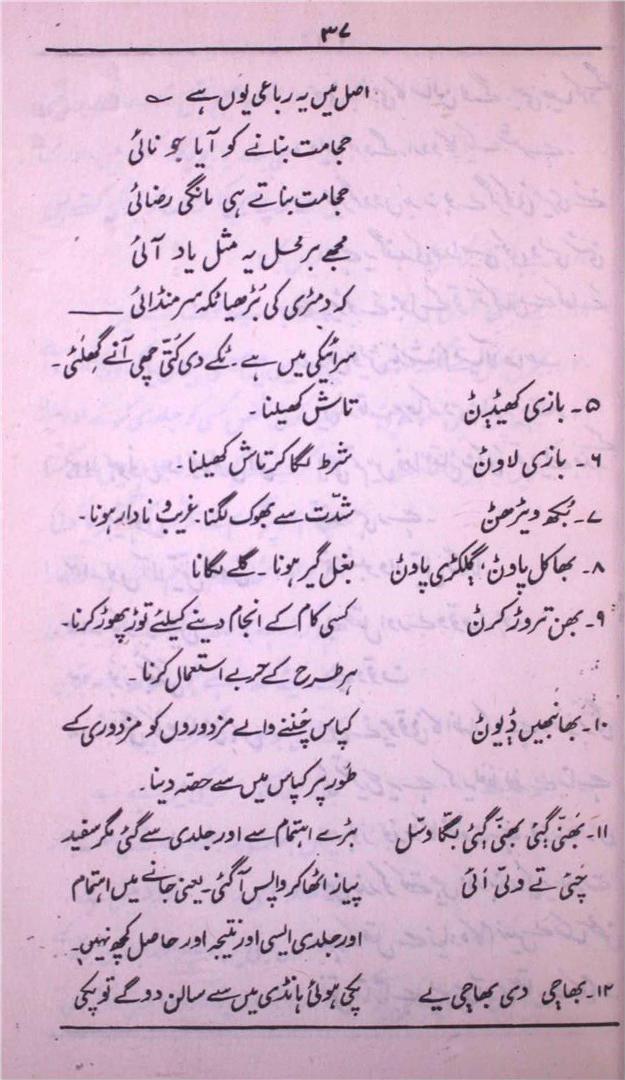 ۳۷
اصل میں یہ رباعی یوں ہے ؎
حجامت بنانے کو آیا جو نائی
حجامت بناتے ہی مانگی رضائی
مجھے بر محل یہ مثل یاد آئی
کہ دمڑی کی بُڑھیا ٹکہ سر منڈائی ——
سرائیکی میں ہے۔ ٹکے دی کُتّی چھی آنے گھلٹی۔
۵۔ بازی کھیڈݨ تاش کھیلنا۔
۶۔ بازی لاوݨ شرط لگا کر تاش کھیلنا۔
۷۔ بُکھ ویڑھݨ شدّت سے بھوک لگنا۔ غریب و نادار ہونا۔
۸۔ بھاکل پاوݨ، ڳلکڑی پاوݨ بغل گیر ہونا۔ گلے لگانا
۹۔ بھن تروڑ کرݨ کسی کام کے انجام دینے کیلئے توڑ پھوڑ کرنا۔
ہر طرح کے حربے استعمال کرنا۔
۱۰۔ بھانبھیں ڈیوݨ کپاس چُننے والے مزدوروں کو مزدوری کے
طور پر کپاس میں سے حصّہ دینا۔
۱۱۔ بھنّی ڳئی بھنّی ڳئی بڳا وتسل بڑے اہتمام سے اور جلدی سے گئی مگر سفید
چئی تے ولی آئی پیاز اٹھا کر واپس آ گئی۔ یعنی جانے میں اہتمام
اور جلدی ایسی اور نتیجہ اور حاصل کچھ نہیں۔
۱۲۔ بھاجی دی بھاجی ہے پکی ہوئی ہانڈی میں سے سالن دو گے تو پکی